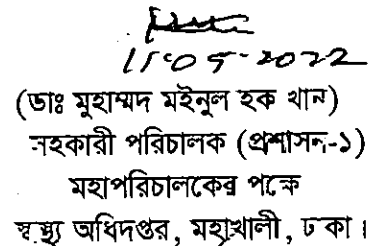 11-05-2022
(ডাঃ মুহাম্মদ মইনুল হক খান)
সহকারী পরিচালক (প্রশাসন-১)
মহাপরিচালকের পক্ষে
স্বাস্থ্য অধিদপ্তর, মহাখালী, ঢাকা।